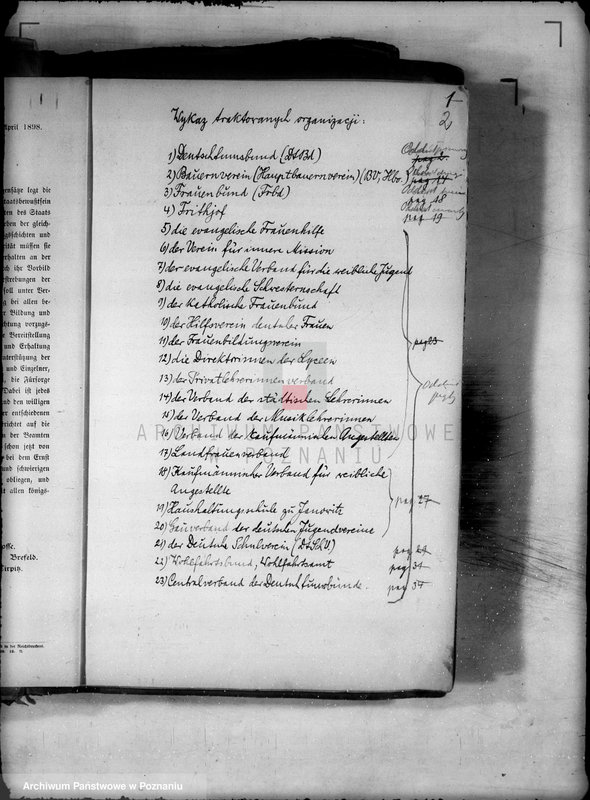 April 1898.
ensätze legt die
taatsbewußtsein
en des Staats
eben der gleich-
gsschichten und
rität müssen sie
erhalten an der
ch ihr Vorbild
strebungen der
soll unter Ver-
bei allen be-
r Bildung und
htung vorzugs-
e Bereitstellung
und Erhaltung
nterstützung der
und Einzelner,
, die Fürsorge
Dabei ist jedes
nd den willigen
er entschiedenen
rrichtet auf die
n der Beamten
schon jetzt von
bei dem Ernst
und schwierigen
obliegen, und
t allen königs-
osse.
Brefeld.
irpitz.
in der Reichsdruckerei.
1
2
Wykaz traktowanych organizacji:
1) Deutschtumsbund (DtBd)
2) Bauernverein (Hauptbauernverein) (BV, Hbv.)
3) Frauenbund (Frbd) pag 18
4) Frithjof pag 19
5) die evangelische Frauenhilfe
6) der Verein für innere Mission
7) der evangelische Verband für die weibliche Jugend
8) die evangelische Schwesternschaft
9) der katholische Frauenbund
10) der Hilfsverein deutscher Frauen
11) der Frauenbildungsverein
12) die Direktorinnen der Lyceen
13) der Privatlehrerinnenverband
14) der Verband der städtischen Lehrerinnen
15) der Verband der Musiklehrerinnen
16) Verband der kaufmännischen Angestellten
17) Landfrauenverband
18) Kaufmännischer Verband für weibliche
Angestellte
pag 27
19) Haushaltungsschule zu Janowitz
20) Gauverband der deutschen Jugendvereine
21) der Deutsche Schulverein (DtSchV)
22) Wohlfahrtsbund, Wohlfahrtsamt pag 31
23) Centralverband der Deutschtumsbünde. pag 37
ARCHIWUM PAŃSTWOWE
W POZNANIU
Archiwum Państwowe w Poznaniu